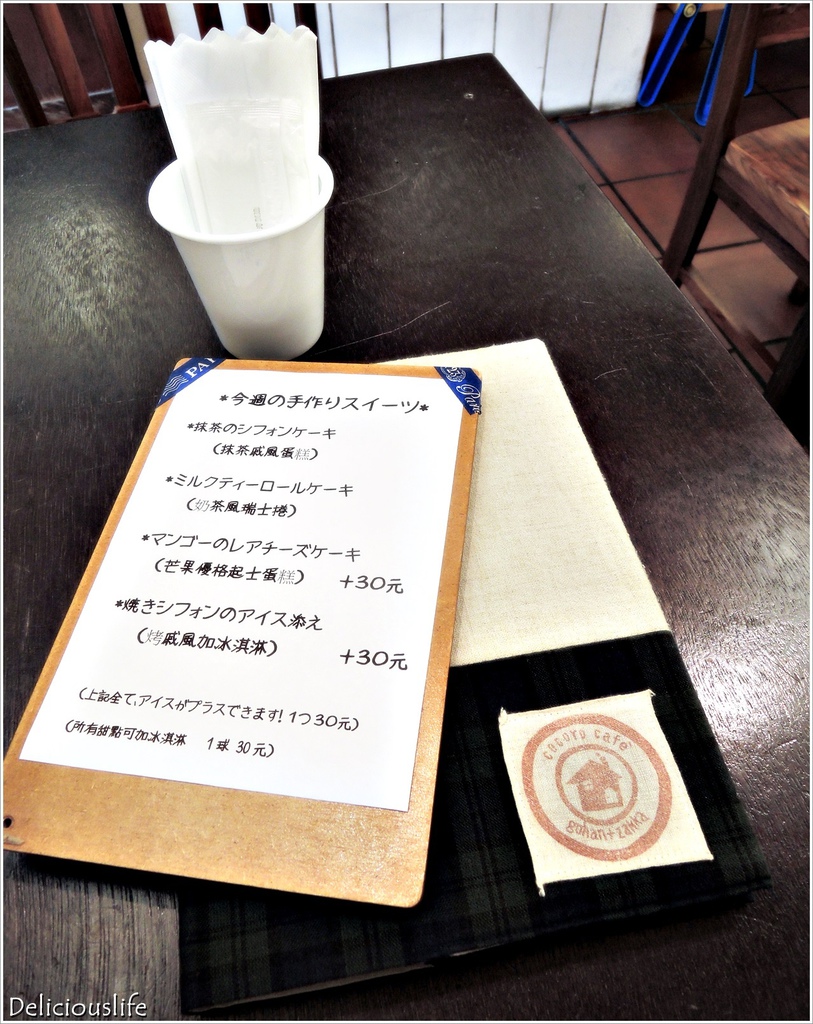 PA
Par
*今週の手作りスイーツ*
*抹茶のシフォンケーキ
(抹茶戚風蛋糕)
*ミルクティーロールケーキ
(奶茶風瑞士捲)
*マンゴーのレアチーズケーキ
(芒果優格起士蛋糕) +30元
*焼きシフォンのアイス添え
(烤戚風加冰淇淋) +30元
(上記全て、アイスがプラスできます! 1つ30元)
(所有甜點可加冰淇淋 1球 30元)
cocoro cafe
gohan+zakka
Deliciouslife